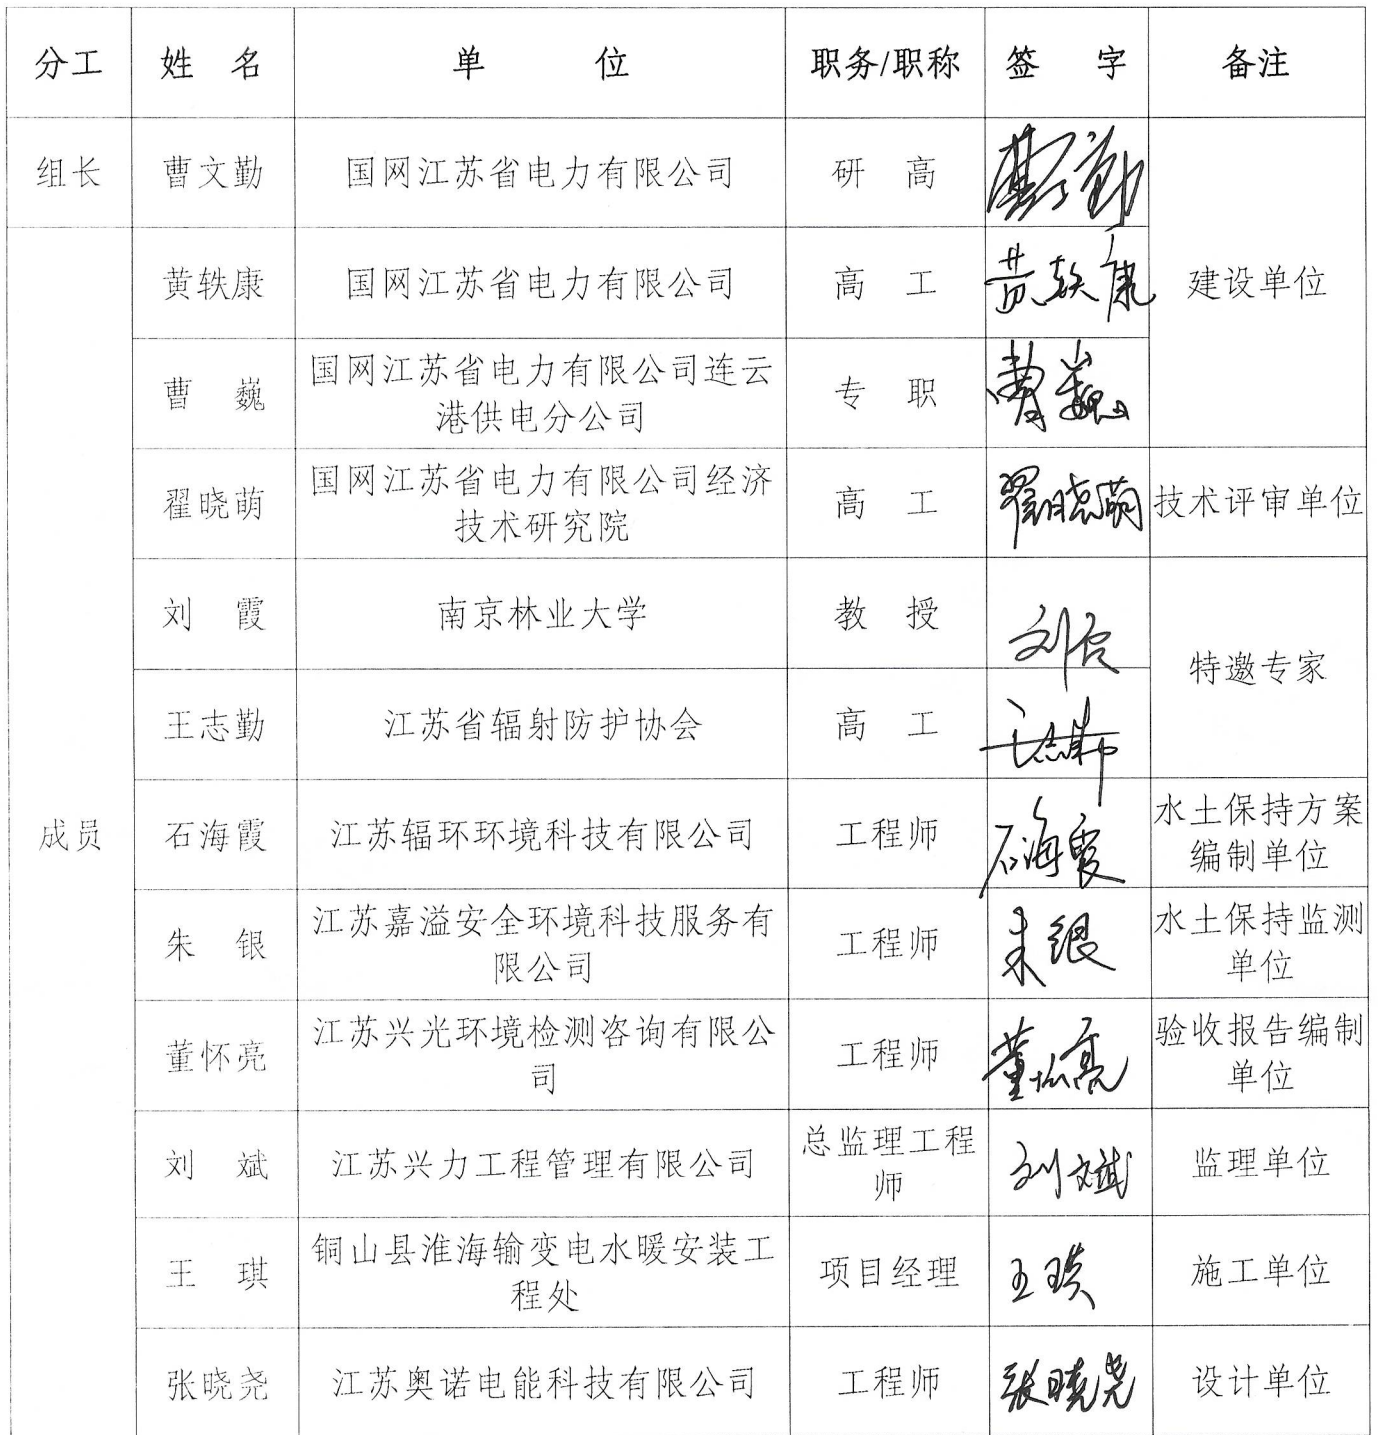 分工 姓 名 单 位 职务/职称 签 字 备注
组长 曹文勤 国网江苏省电力有限公司 研 高 曹文勤
黄轶康 国网江苏省电力有限公司 高 工 黄轶康 建设单位
曹 巍 国网江苏省电力有限公司连云
港供电分公司 专 职 曹巍
翟晓萌 国网江苏省电力有限公司经济
技术研究院 高 工 翟晓萌 技术评审单位
刘 霞 南京林业大学 教 授 刘霞
特邀专家
王志勤 江苏省辐射防护协会 高 工 王志勤
成员 石海霞 江苏辐环环境科技有限公司 工程师 石海霞 水土保持方案
编制单位
朱 银 江苏嘉溢安全环境科技服务有
限公司 工程师 朱银 水土保持监测
单位
董怀亮 江苏兴光环境检测咨询有限公
司 工程师 董怀亮 验收报告编制
单位
刘 斌 江苏兴力工程管理有限公司 总监理工程
师 刘斌 监理单位
王 琪 铜山县淮海输变电水暖安装工
程处 项目经理 王琪 施工单位
张晓尧 江苏奥诺电能科技有限公司 工程师 张晓尧 设计单位